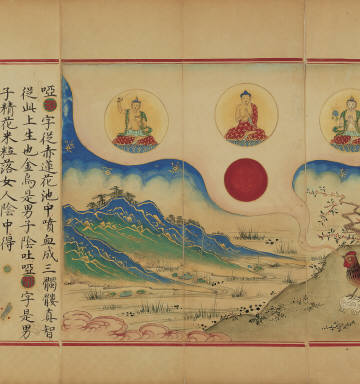 啞字從赤蓮花池中噴血成三髑髏真智
從此上生也金烏是男子陰吐啞字是男
子精花米粒落女人陰中得